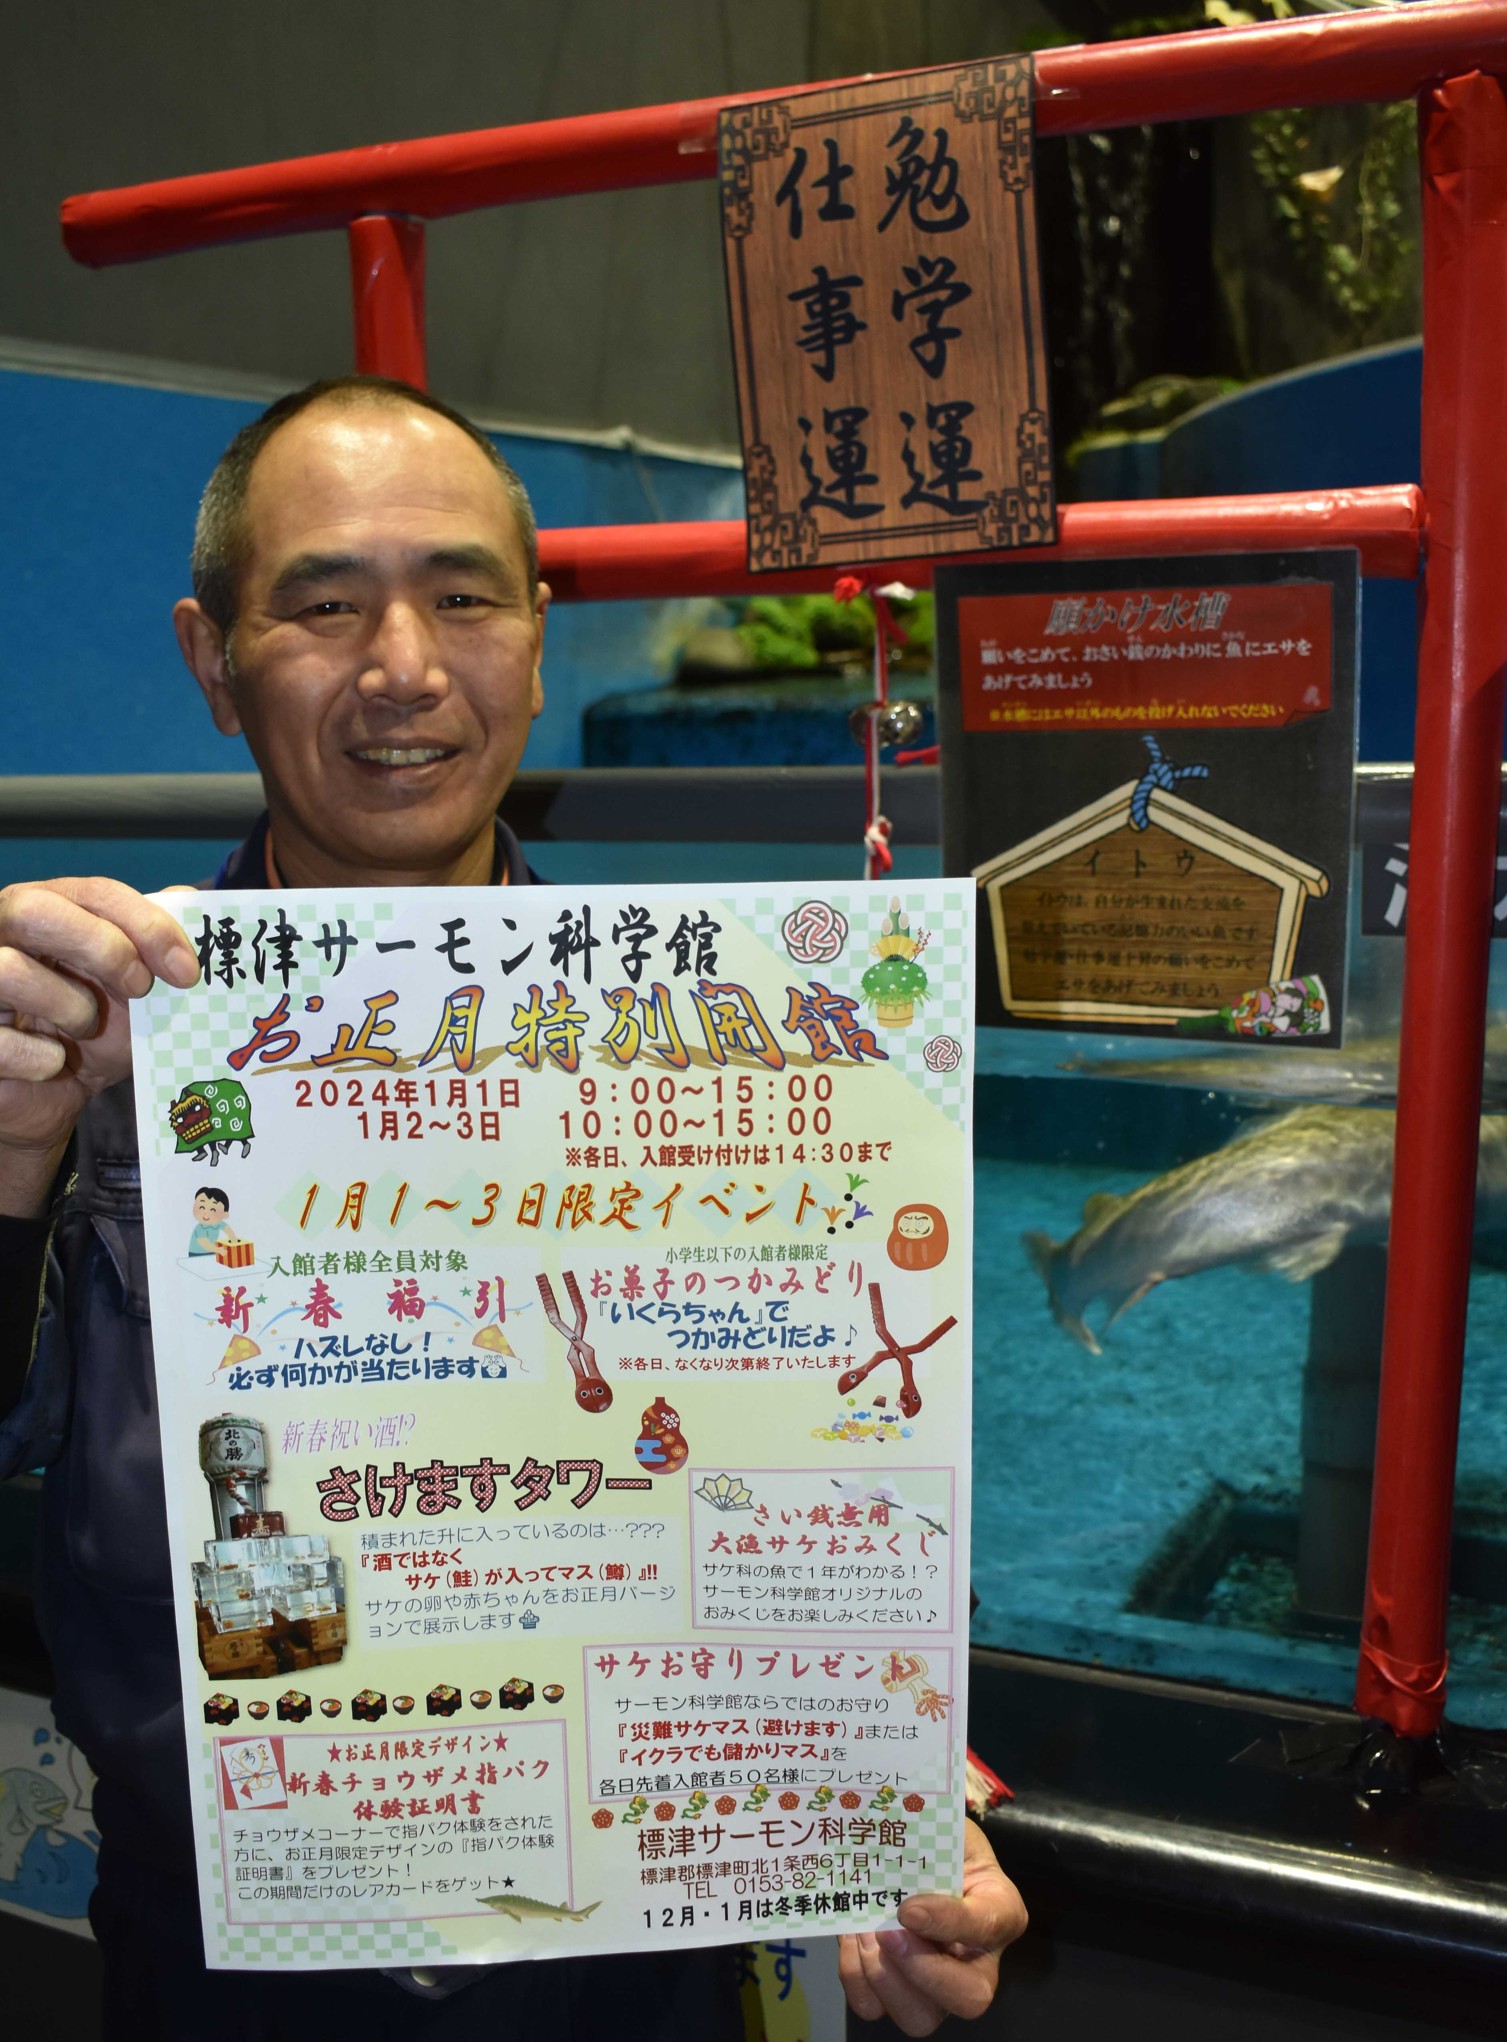 勉学運
仕事運
願かけ水槽
願いをこめて、おさい銭のかわりに魚にエサを
あげてみましょう
※水槽にはエサ以外のものを投げ入れないでください
イトウ
イトウは、自分が生まれた交流を
覚えていている記憶力のいい魚です
勉学運・仕事運上昇の願いをこめて
エサをあげてみましょう
標津サーモン科学館
お正月特別開館
2024年1月1日 9:00～15:00
1月2～3日 10:00～15:00
※各日、入館受け付けは14:30まで
1月1～3日限定イベント
入館者様全員対象
新春福引
ハズレなし!
必ず何かが当たります
小学生以下の入館者様限定
お菓子のつかみどり
『いくらちゃん』で
つかみどりだよ♪
※各日、なくなり次第終了いたします
新春祝い酒!?
さけますタワー
北の勝
積まれた升に入っているのは…???
『酒ではなく
サケ(鮭)が入ってマス(鱒)』!!
サケの卵や赤ちゃんをお正月バージ
ョンで展示します
さい銭無用
大漁サケおみくじ
サケ科の魚で1年がわかる!?
サーモン科学館オリジナルの
おみくじをお楽しみください♪
サケお守りプレゼント
サーモン科学館ならではのお守り
『災難サケマス(避けます)』または
『イクラでも儲かりマス』を
各日先着入館者50名様にプレゼント
★お正月限定デザイン★
新春チョウザメ指パク
体験証明書
チョウザメコーナーで指パク体験をされた
方に、お正月限定デザインの『指パク体験
証明書』をプレゼント!
この期間だけのレアカードをゲット★
標津サーモン科学館
標津郡標津町北1条西6丁目1-1-1
TEL 0153-82-1141
12月・1月は冬季休館中です
ます